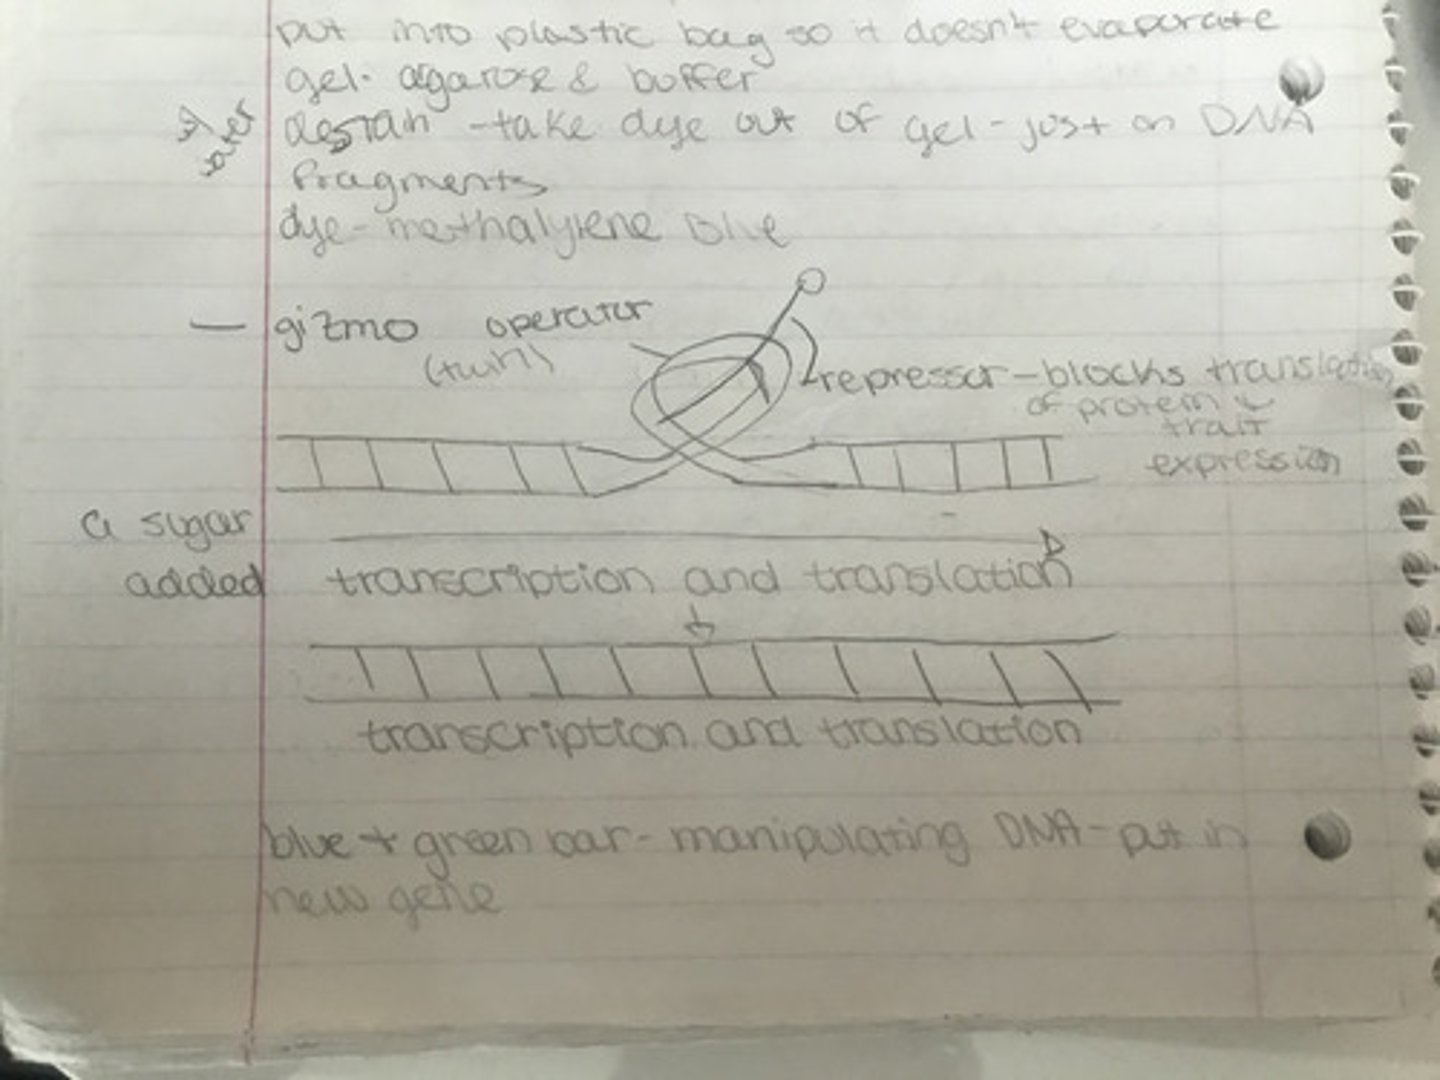 put into plastic bag so it doesn't evaporate
gel - agarose & buffer
w/ water
destain - take dye out of gel - just on DNA
fragments
dye - methalylene blue
— gizmo operator
repressor - blocks translation
of protein &
trait
expression
a sugar
added
transcription and translation
transcription and translation
blue + green bar - manipulating DNA - put in
new gene